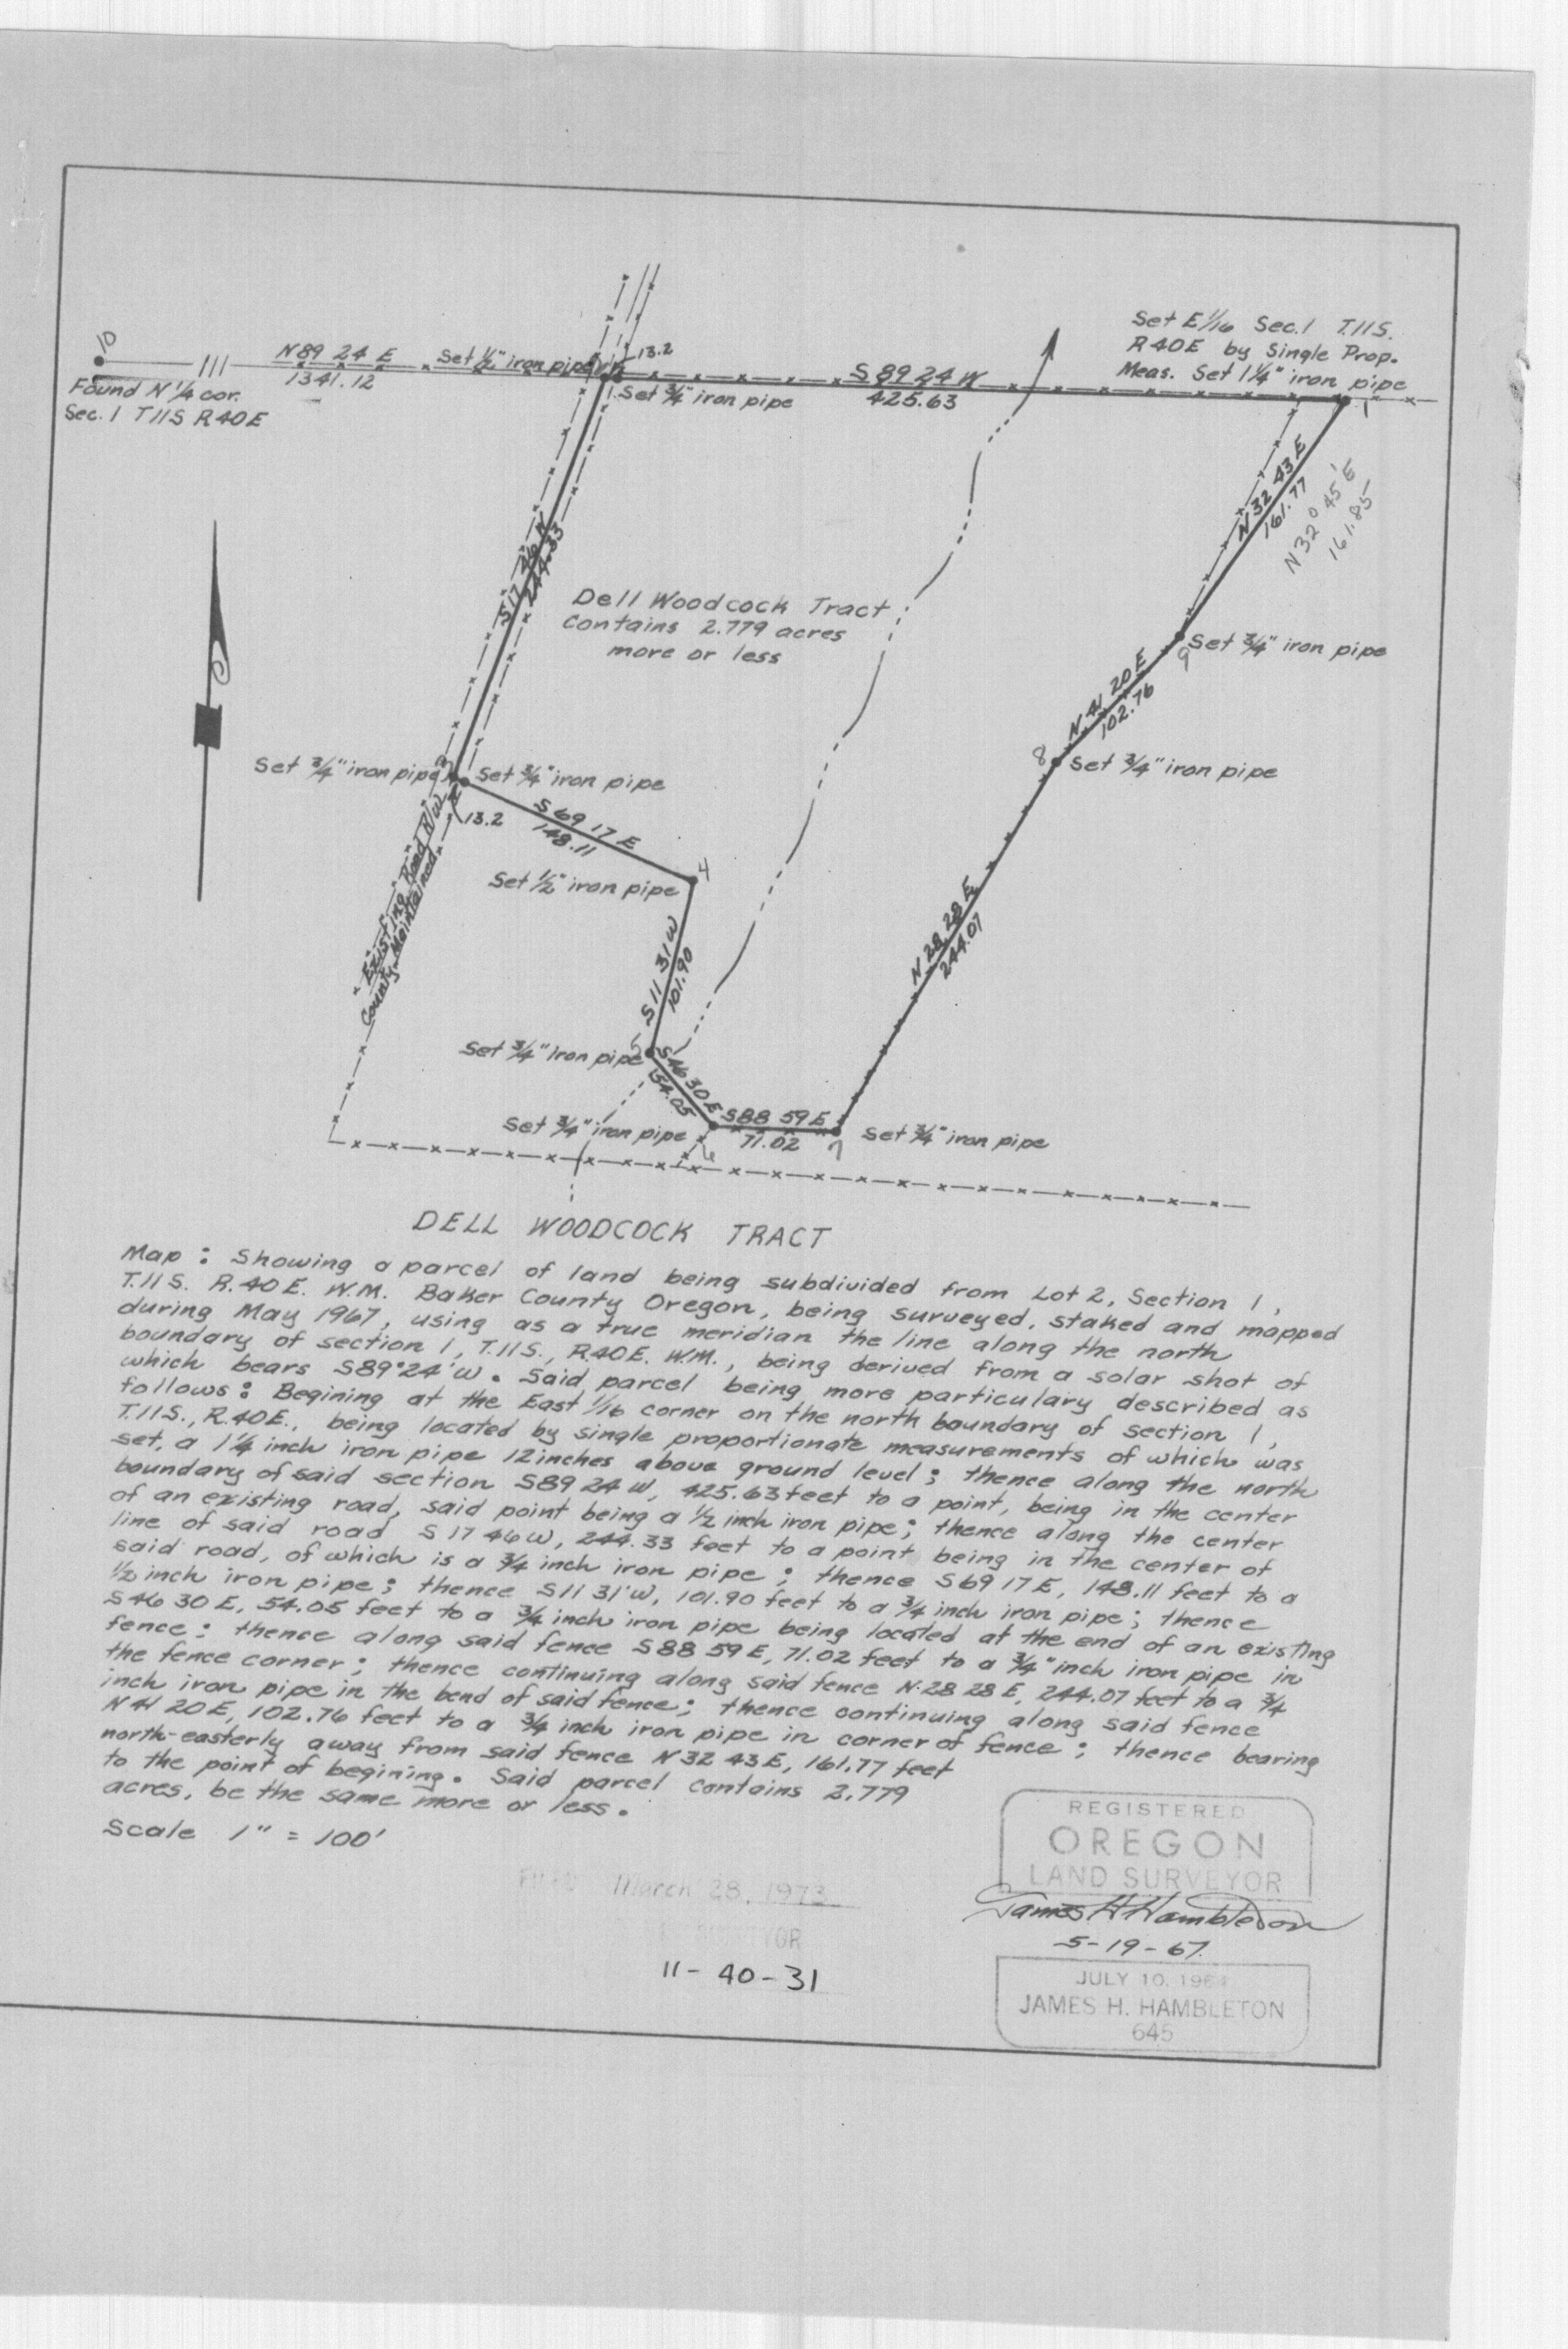 Set E 1/16 Sec. 1 T.11S.
R40E by Single Prop.
Meas. Set 1 1/4" iron pipe
10
N 89 24 E
1341.12
Found N 1/4 cor.
Sec. 1 T11S R40E
Set 1/2" iron pipe
13.2
Set 3/4" iron pipe
S 89 24 W
425.63
1
N 32 43 E
161.77
N 32° 45' E
161.85
S 17 46 W
244.33
Dell Woodcock Tract
Contains 2.779 acres
more or less
Set 3/4" iron pipe
9
N 41 20 E
102.76
8
Set 3/4" iron pipe
Set 3/4" iron pipe
3
Set 3/4" iron pipe
13.2
S 69 17 E
148.11
4
Set 1/2" iron pipe
Existing Road R/W
County Maintained.
N 28 28 E
244.07
S 11 31 W
101.90
Set 3/4" iron pipe
5
S 46 30 E
54.05
Set 3/4" iron pipe
6
S 88 59 E
71.02
7
Set 3/4" iron pipe
DELL WOODCOCK TRACT
Map: Showing a parcel of land being subdivided from Lot 2, Section 1,
T.11S. R.40E. W.M. Baker County Oregon, being surveyed, staked and mapped
during May 1967, using as a true meridian the line along the north
boundary of section 1, T.11S., R.40E. W.M., being derived from a solar shot of
which bears S89°24'W. Said parcel being more particulary described as
follows: Begining at the East 1/16 corner on the north boundary of section 1,
T.11S., R.40E., being located by single proportionate measurements of which was
set, a 1 1/4 inch iron pipe 12 inches above ground level; thence along the north
boundary of said section S89 24 W, 425.63 feet to a point, being in the center
of an existing road, said point being a 1/2 inch iron pipe; thence along the center
line of said road S 17 46 W, 244.33 feet to a point being in the center of
said road, of which is a 3/4 inch iron pipe; thence S69 17 E, 148.11 feet to a
1/2 inch iron pipe; thence S11 31'W, 101.90 feet to a 3/4 inch iron pipe; thence
S46 30 E, 54.05 feet to a 3/4 inch iron pipe being located at the end of an existing
fence; thence along said fence S88 59 E, 71.02 feet to a 3/4" inch iron pipe in
the fence corner; thence continuing along said fence N 28 28 E, 244.07 feet to a 3/4
inch iron pipe in the bend of said fence; thence continuing along said fence
N 41 20 E, 102.76 feet to a 3/4 inch iron pipe in corner of fence; thence bearing
north-easterly away from said fence N 32 43 E, 161.77 feet
to the point of begining. Said parcel contains 2.779
acres, be the same more or less.
Scale 1" = 100'
REGISTERED
OREGON
LAND SURVEYOR
James H Hambleton
5-19-67.
JULY 10, 1964
JAMES H. HAMBLETON
645
FILED March 28, 1973
11-40-31